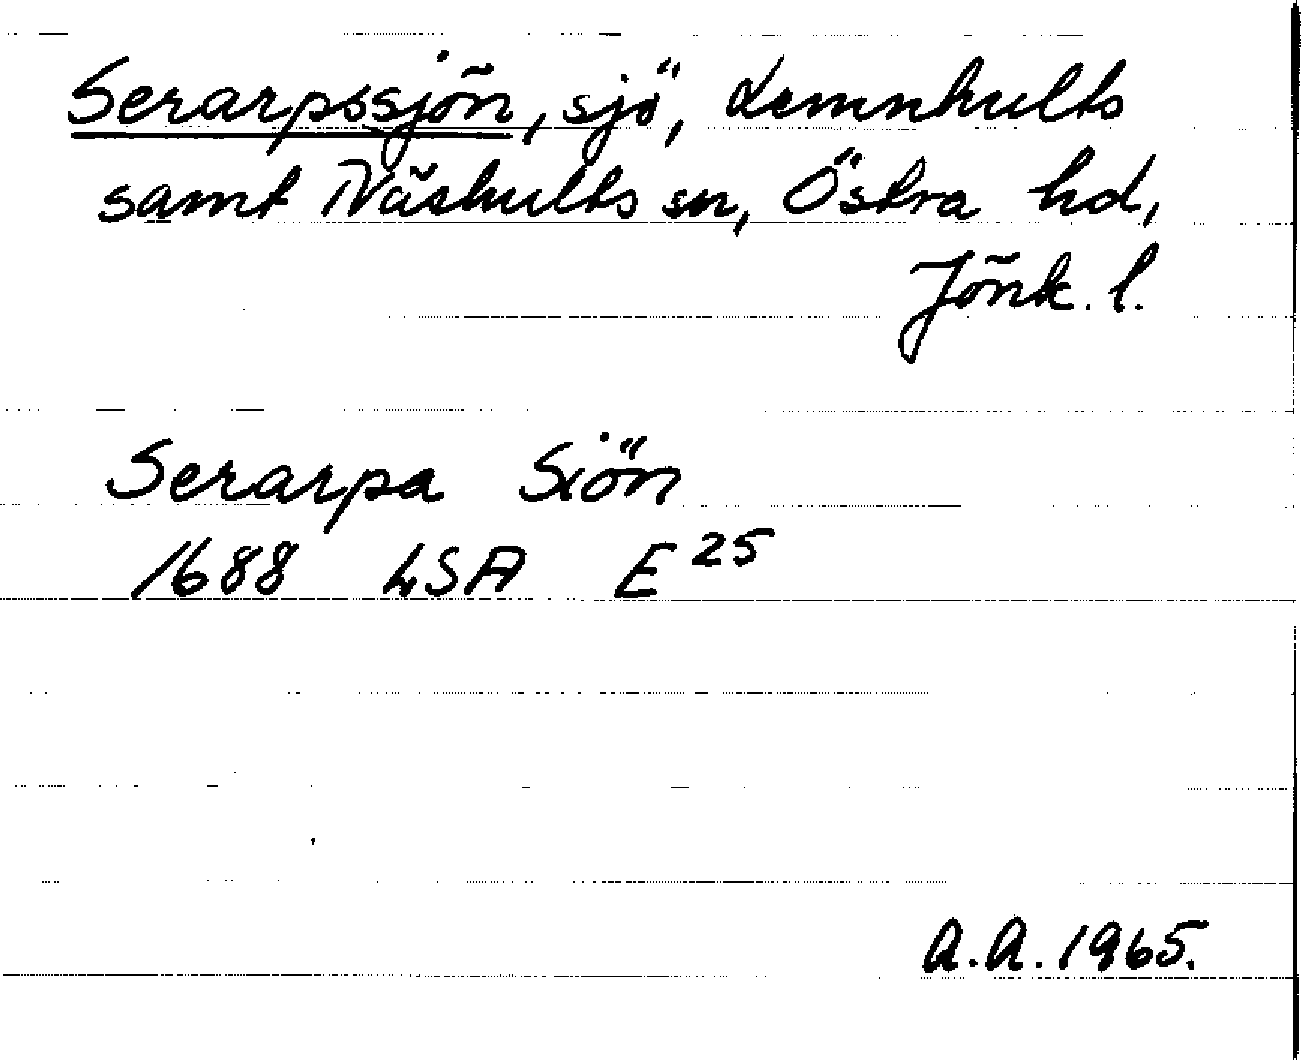 Serarpssjön, sjö, Lemnhults
samt Näshults sn, Östra hd,
Jönk. l.
Serarpa Siön
1688 LSA E 25
A.A. 1965.